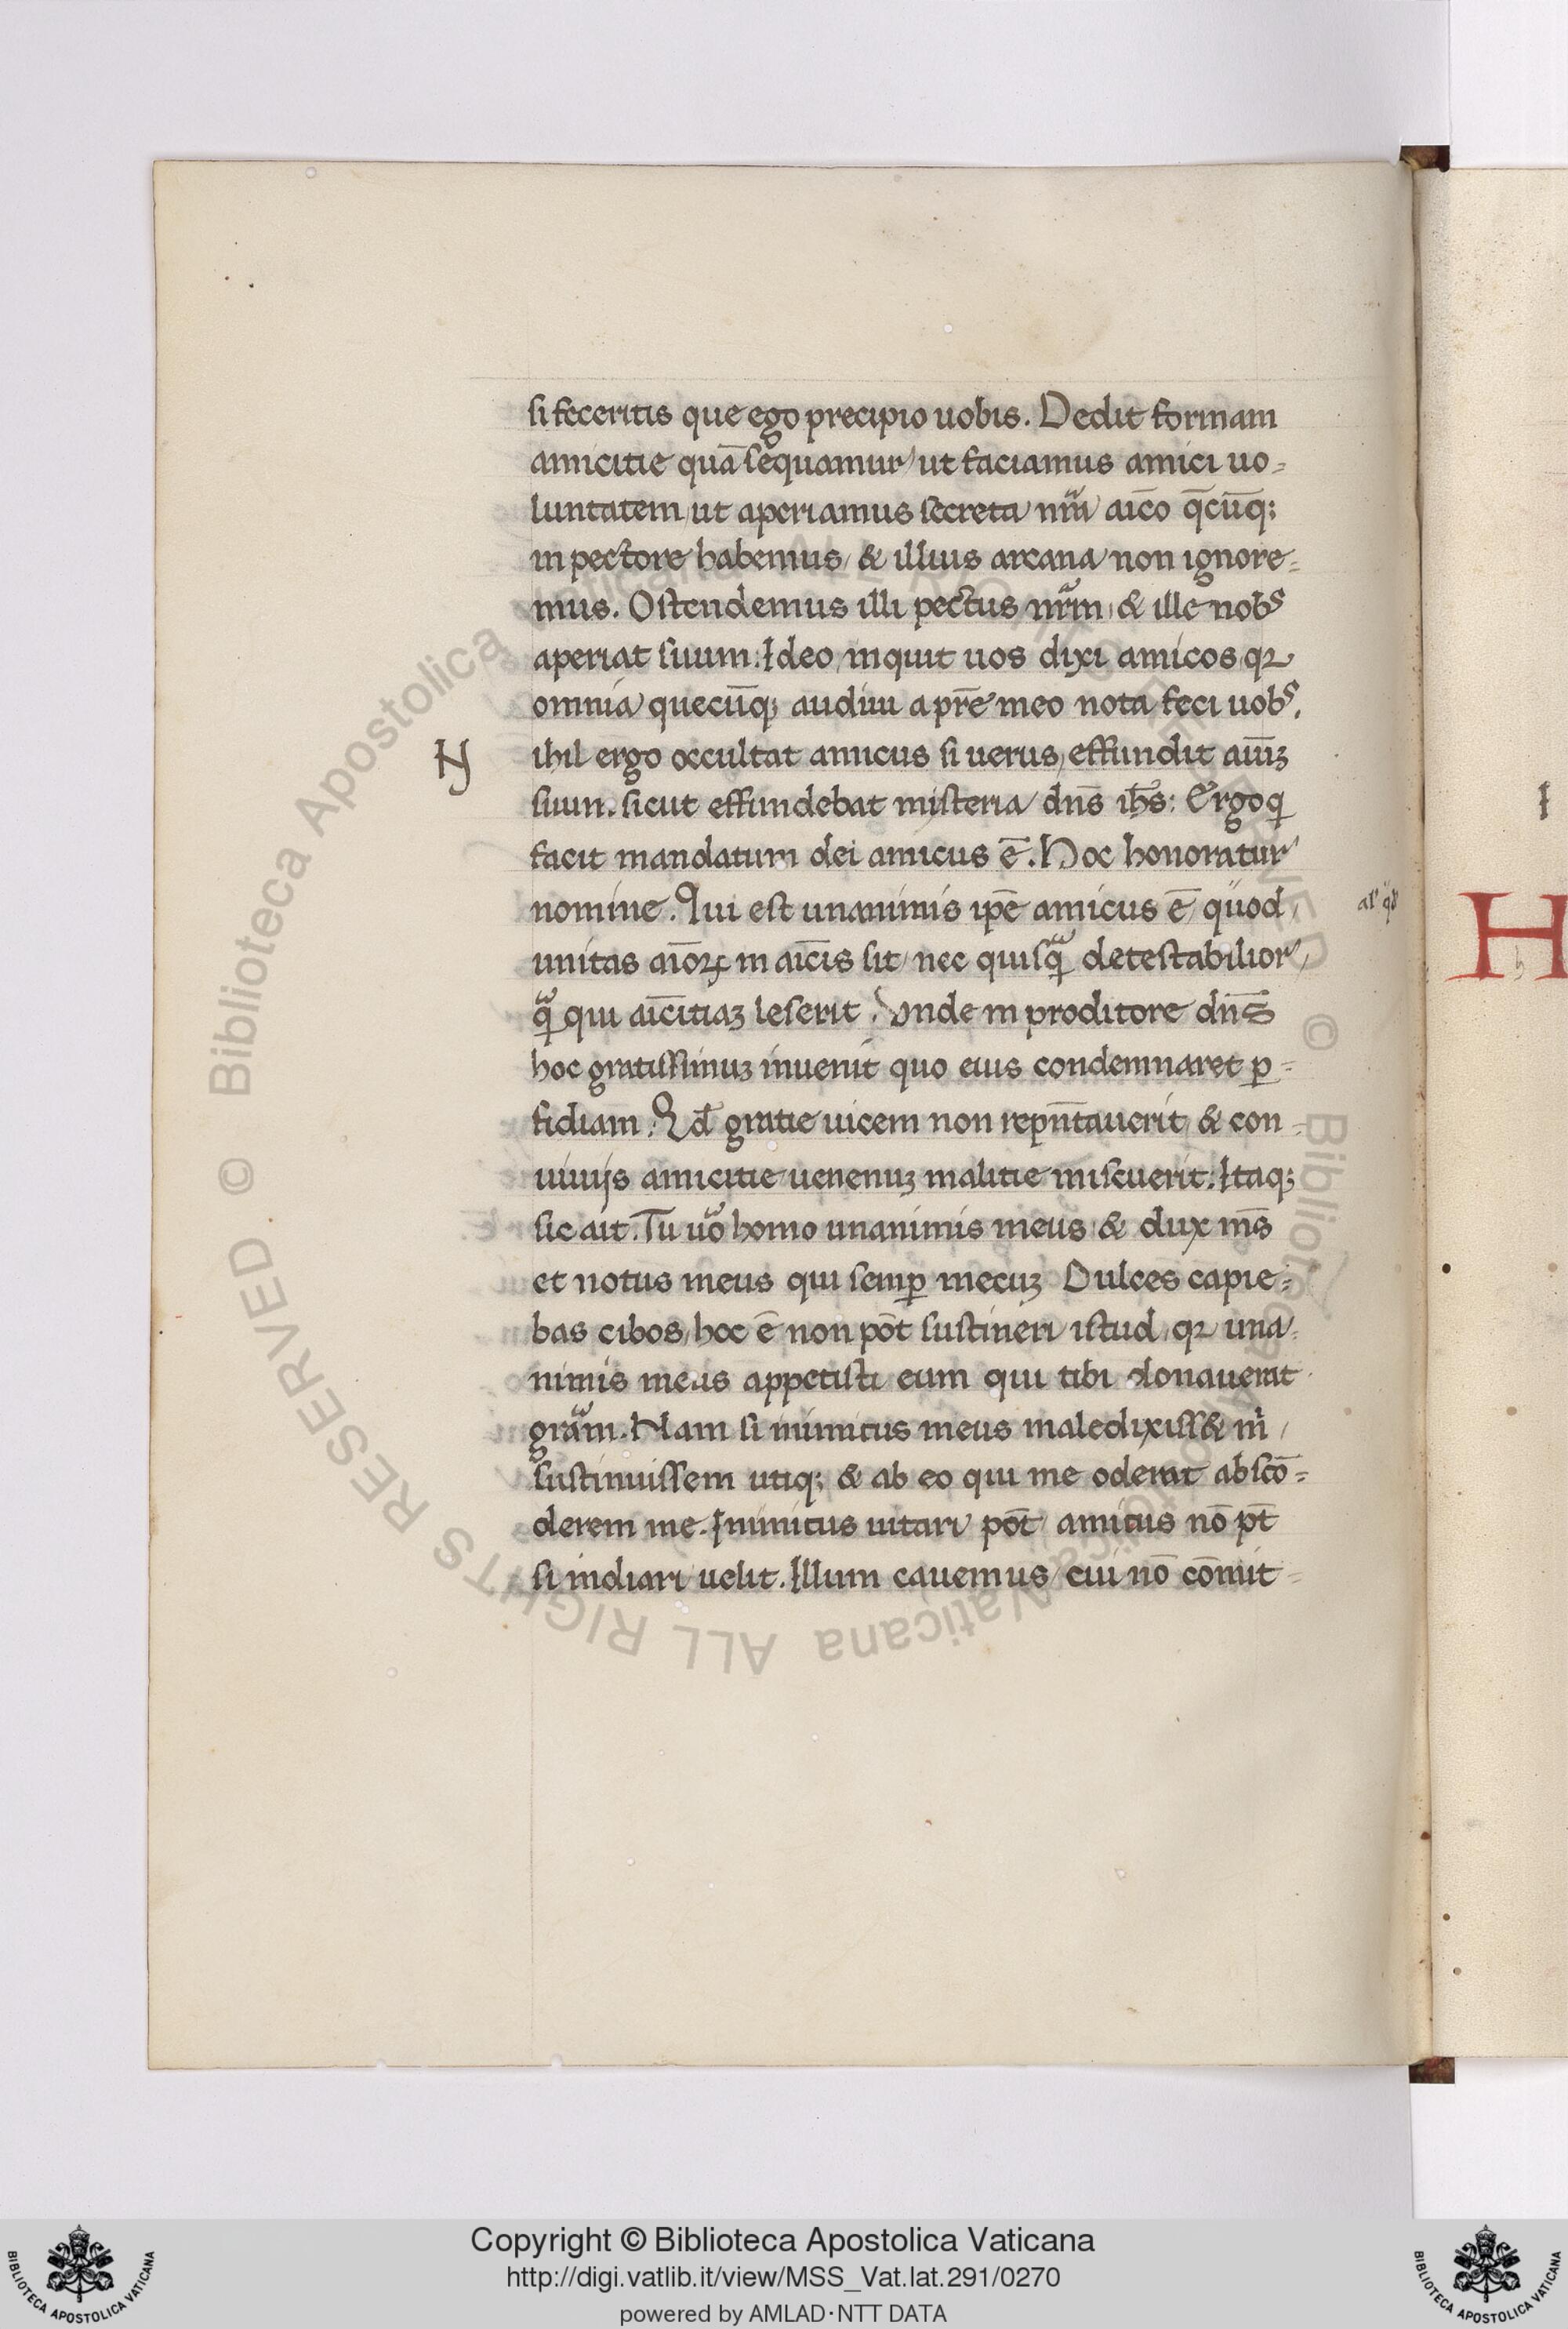 si feceritis que ego precipio uobis. Dedit formam
amicitie quā sequamur / ut faciamus amici uo-
luntatem / ut aperiamus secreta nr̄a aīco q̄cūq;
in pectore habemus / & illius arcana non ignore-
mus. Ostendemus illi pectus nr̄m / & ille nob⁹
aperiat suum. Ideo inquit uos dixi amicos qꝛ
omnia quecūq; audiui a pr̄e meo nota feci uob⁹.
N ihil ergo occultat amicus si uerus / effundit aīuꝫ
suum. sicut effundebat misteria dn̄s ih̄s: Ergo qͥ
facit mandatum dei amicus ē. Hoc honoratur
nomine. Qui est unanimis ip̄e amicus ē / quod
unitas aīoꝝ in aīcis sit / nec quisqᷓ detestabilior /
qᷓ qui aīcitiaꝫ leserit. Vnde in proditore dn̄s
hoc gratissimuꝫ inuenit quo eius condemnaret ꝑ-
fidiam. Qd̄ gratie uicem non repn̄tauerit / & con-
uiuijs amicitie uenenuꝫ malitie miscuerit. Itaq;
sic ait. Tu uᵒo homo unanimis meus & dux m̄s
et notus meus qui semꝑ mecuꝫ Dulces capie-
bas cibos / hoc ē non pōt sustineri istud / qꝛ una-
nimis meus appetisti eum qui tibi donauerat
grᷓam. Nam si inimicus meus maledixiss& m̄ /
sustinuissem utiq; & ab eo qui me oderat abscō-
derem me. Inimicus uitari pōt / amicus nō pt̄
si indiari uelit. Illum cauemus / cui nō cōmit-
al' qͥd
H
© Biblioteca Apostolica Vaticana ALL RIGHTS RESERVED
© Biblioteca Apostolica Vaticana ALL RIGHTS RESERVED
BIBLIOTECA APOSTOLICA VATICANA
Copyright © Biblioteca Apostolica Vaticana
http://digi.vatlib.it/view/MSS_Vat.lat.291/0270
powered by AMLAD·NTT DATA
BIBLIOTECA APOSTOLICA VATICANA